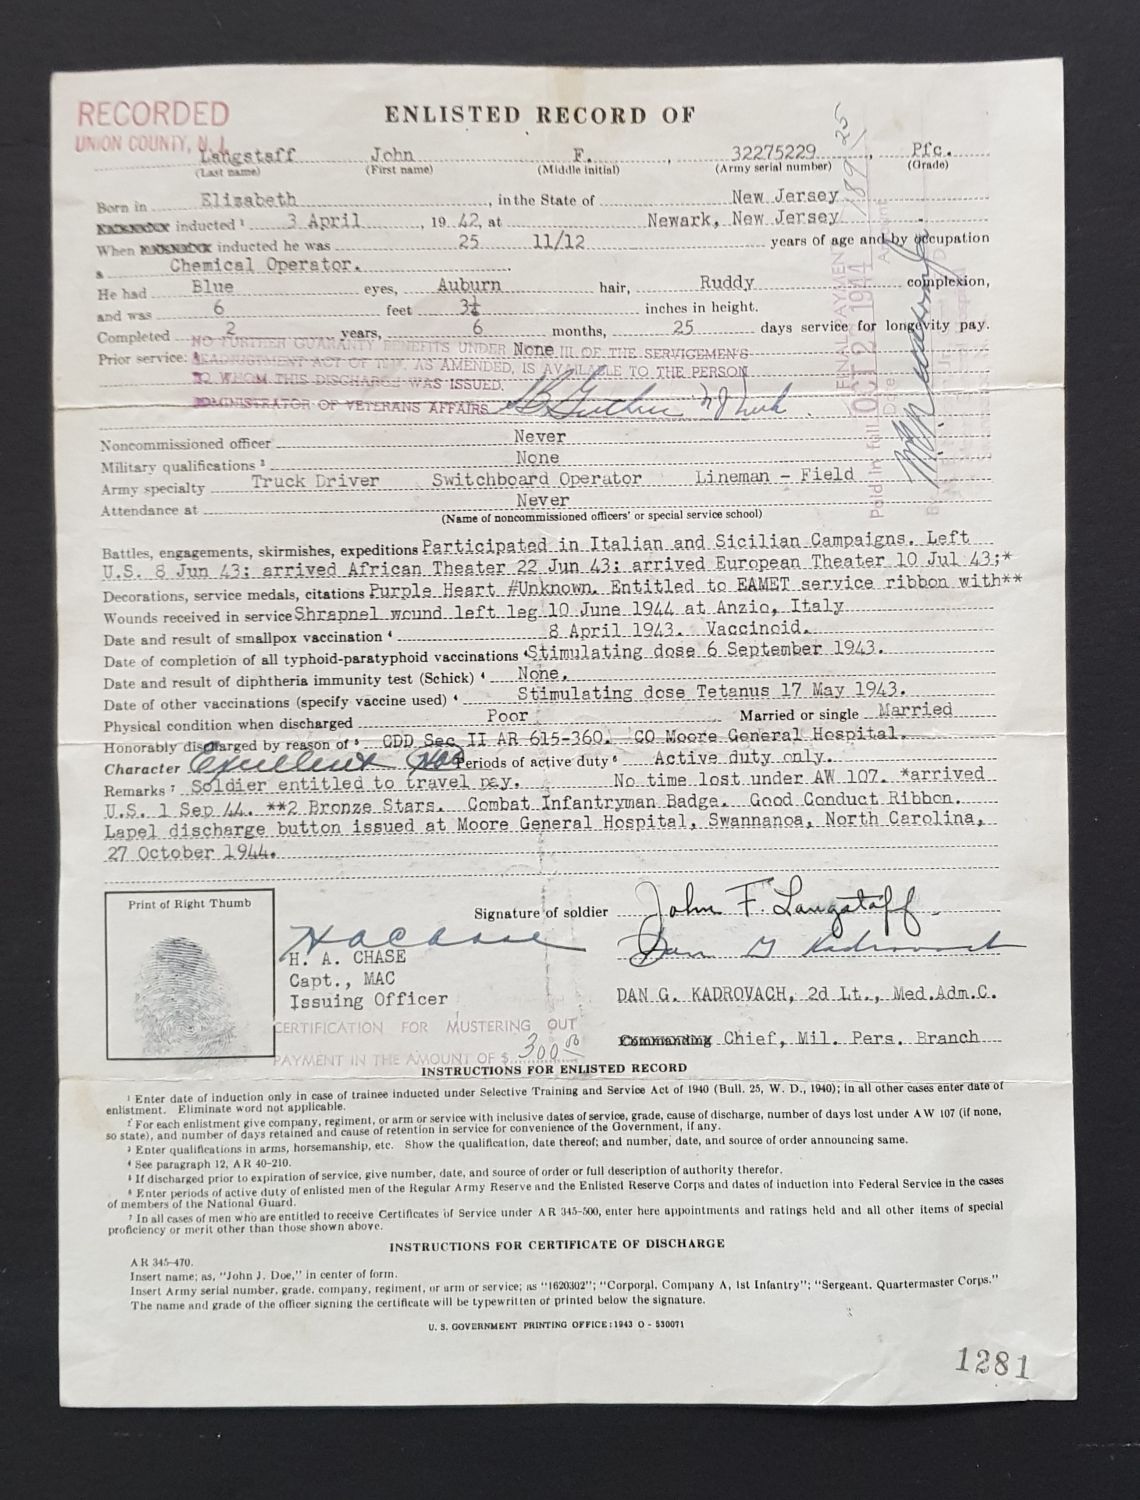 RECORDED
UNION COUNTY, N. J.
ENLISTED RECORD OF
Langstaff John F. , 32275229 , Pfc.
(Last name) (First name) (Middle initial) (Army serial number) (Grade)
Born in Elizabeth , in the State of New Jersey
inducted ¹ 3 April , 19 42, at Newark, New Jersey
When inducted he was 25 11/12 years of age and by occupation
a Chemical Operator.
He had Blue eyes, Auburn hair, Ruddy complexion,
and was 6 feet inches in height.
Completed 2 years, 6 months, 25 days service for longevity pay.
NO FURTHER GUARANTY BENEFITS UNDER III OF THE SERVICEMEN'S
Prior service: ² None
READJUSTMENT ACT OF AS AMENDED, IS AVAILABLE TO THE PERSON
TO WHOM THIS DISCHARGE WAS ISSUED.
ADMINISTRATOR OF VETERANS AFFAIRS
FINAL PAYMENT
Paid in full OCT 27 1944
Noncommissioned officer Never
Military qualifications ³ None
Army specialty Truck Driver Switchboard Operator Lineman - Field
Attendance at Never
(Name of noncommissioned officers' or special service school)
Battles, engagements, skirmishes, expeditions Participated in Italian and Sicilian Campaigns. Left
U.S. 8 Jun 43; arrived African Theater 22 Jun 43; arrived European Theater 10 Jul 43;*
Decorations, service medals, citations Purple Heart #Unknown. Entitled to EAMET service ribbon with**
Wounds received in service Shrapnel wound left leg 10 June 1944 at Anzio, Italy
Date and result of smallpox vaccination ⁴ 8 April 1943. Vaccinoid.
Date of completion of all typhoid-paratyphoid vaccinations ⁴ Stimulating dose 6 September 1943.
Date and result of diphtheria immunity test (Schick) ⁴ None.
Date of other vaccinations (specify vaccine used) ⁴ Stimulating dose Tetanus 17 May 1943.
Physical condition when discharged Poor Married or single Married
Honorably discharged by reason of ⁵ CDD Sec II AR 615-360. CO Moore General Hospital.
Character Excellent Periods of active duty ⁶ Active duty only.
Remarks ⁷ Soldier entitled to travel pay. No time lost under AW 107. *arrived
U.S. 1 Sep 44. **2 Bronze Stars. Combat Infantryman Badge. Good Conduct Ribbon.
Lapel discharge button issued at Moore General Hospital, Swannanoa, North Carolina,
27 October 1944.
Print of Right Thumb
Signature of soldier John F. Langstaff
H A Chase
Dan G Kadrovach
H. A. CHASE
Capt., MAC
Issuing Officer
DAN G. KADROVACH, 2d Lt., Med.Adm.C.
CERTIFICATION FOR MUSTERING OUT
Commanding Chief, Mil. Pers. Branch
PAYMENT IN THE AMOUNT OF $ 300 00
INSTRUCTIONS FOR ENLISTED RECORD
¹ Enter date of induction only in case of trainee inducted under Selective Training and Service Act of 1940 (Bull. 25, W. D., 1940); in all other cases enter date of
enlistment. Eliminate word not applicable.
² For each enlistment give company, regiment, or arm or service with inclusive dates of service, grade, cause of discharge, number of days lost under AW 107 (if none,
so state), and number of days retained and cause of retention in service for convenience of the Government, if any.
³ Enter qualifications in arms, horsemanship, etc. Show the qualification, date thereof; and number, date, and source of order announcing same.
⁴ See paragraph 12, AR 40-210.
⁵ If discharged prior to expiration of service, give number, date, and source of order or full description of authority therefor.
⁶ Enter periods of active duty of enlisted men of the Regular Army Reserve and the Enlisted Reserve Corps and dates of induction into Federal Service in the cases
of members of the National Guard.
⁷ In all cases of men who are entitled to receive Certificates of Service under AR 345-500, enter here appointments and ratings held and all other items of special
proficiency or merit other than those shown above.
INSTRUCTIONS FOR CERTIFICATE OF DISCHARGE
AR 345-470.
Insert name; as, "John J. Doe," in center of form.
Insert Army serial number, grade, company, regiment, or arm or service; as "1620302"; "Corporal, Company A, 1st Infantry"; "Sergeant, Quartermaster Corps."
The name and grade of the officer signing the certificate will be typewritten or printed below the signature.
U. S. GOVERNMENT PRINTING OFFICE : 1943 O - 530071
1281